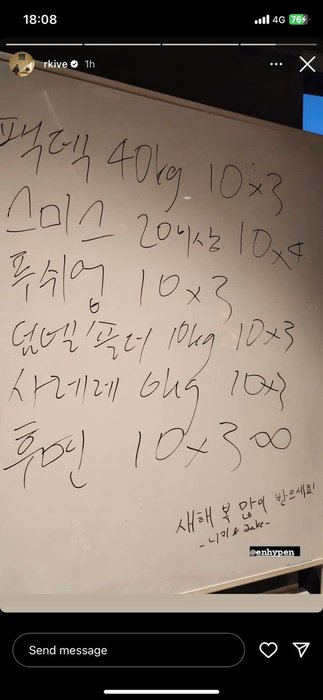 18:08
4G 76
rkive 1h
팩덱 40kg 10x3
스미스 20이상 10x4
푸쉬업 10x3
덤벨 숄더 10kg 10x3
사레레 6kg 10x3
후면 10x3∞
새해 복 많이 받으세요!
- 니키 & Jake -
@enhypen
Send message